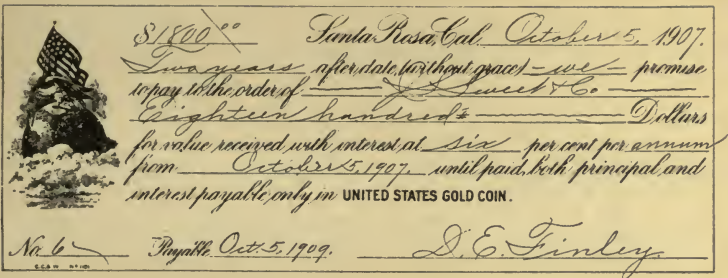 $1800.00 Santa Rosa, Cal. October 5, 1907.
Two years after date, (without grace) — we — promise
to pay to the order of J S Sweet & Co
Eighteen hundred Dollars
for value received, with interest at six per cent per annum
from October 5, 1907. until paid, both principal and
interest payable only in UNITED STATES GOLD COIN.
No. 6 Payable Oct. 5, 1909. D. E. Finley.